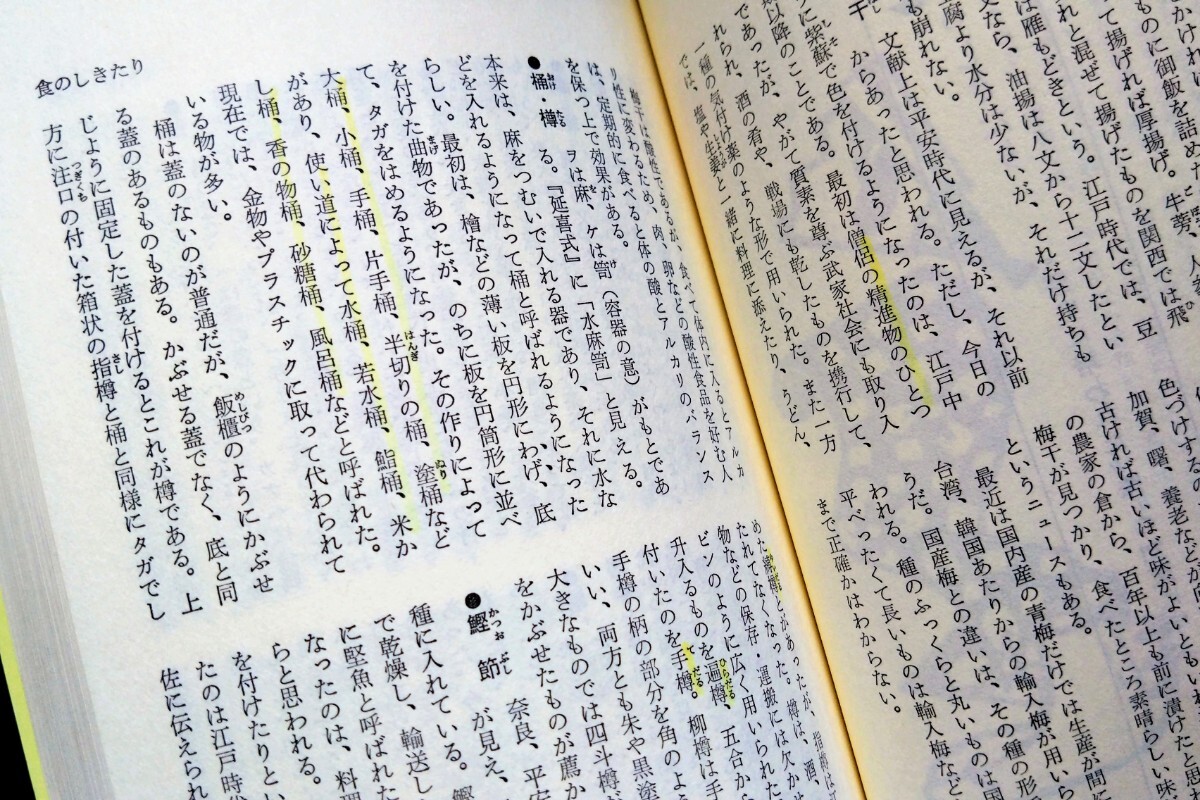 ものに御飯を詰め
て揚げれば厚揚げ。牛蒡、人
れと混ぜて揚げたものを関西では飛
は雁もどきという。江戸時代では、豆
文なら、油揚は八文から十二文したとい
腐より水分は少ないが、それだけ持ちも
も崩れない。
干 文献上は平安時代に見えるが、それ以前
からあったと思われる。ただし、今日の
うに紫蘇で色を付けるようになったのは、江戸中
以降のことである。最初は僧侶の精進物のひとつ
であったが、やがて質素を尊ぶ武家社会にも取り入
れられ、酒の肴や、戦場にも乾したものを携行して、
一種の気付け薬のような形で用いられた。また一方
では、塩や生姜と一緒に料理に添えたり、うどん、
色づけする
加賀、曙、養老などが
古ければ古いほど味がよいとも
の農家の倉から、百年以上も前に漬けた
梅干が見つかり、食べたところ素晴らしい味
というニュースもある。
最近は国内産の青梅だけでは生産が間に
台湾、韓国あたりからの輸入梅が用い
うだ。国産梅との違いは、その種の形
われる。種のふっくらと丸いものは国
平べったくて長いものは輸入梅など
まで正確かはわからない。
梅干は酸性であるが、食べて体内に入るとアルカ
リ性に変わるため、肉、卵などの酸性食品を好む人
は、定期的に食べると体の酸とアルカリのバランス
を保つ上で効果がある。
●桶・樽 ヲは麻、ケは笥(容器の意)がもとであ
る。『延喜式』に「水麻笥」と見える。
本来は、麻をつむいで入れる器であり、それに水な
どを入れるようになって桶と呼ばれるようになった
らしい。最初は、檜などの薄い板を円形にわげ、底
を付けた曲物であったが、のちに板を円筒形に並べ
て、タガをはめるようになった。その作りによって
大桶、小桶、手桶、片手桶、半切りの桶、塗桶など
があり、使い道によって水桶、若水桶、鮨桶、米か
し桶、香の物桶、砂糖桶、風呂桶などと呼ばれた。
現在では、金物やプラスチックに取って代わられて
いる物が多い。
桶は蓋のないのが普通だが、飯櫃のようにかぶせ
る蓋のあるものもある。かぶせる蓋でなく、底と同
じように固定した蓋を付けるとこれが樽である。上
方に注口の付いた箱状の指樽と桶と同様にタガでし
めた樽とがあったが、指樽は
たれてなくなった。樽は、酒、
物などの保存・運搬には欠かせ
ビンのように広く用いられた
升入るものを遍樽、五合から
付いたのを手樽。柳樽は手
手樽の柄の部分を角のよう
いい、両方とも朱や黒塗
大きなものでは四斗樽が
をかぶせたものが薦か
●鰹節 奈良、平安
が見え、
種に入れている。鰹
で乾燥し、輸送し
に堅魚と呼ばれた
なったのは、料理
らと思われる。
を付けたりとい
たのは江戸時代
佐に伝えられ
食のしきたり